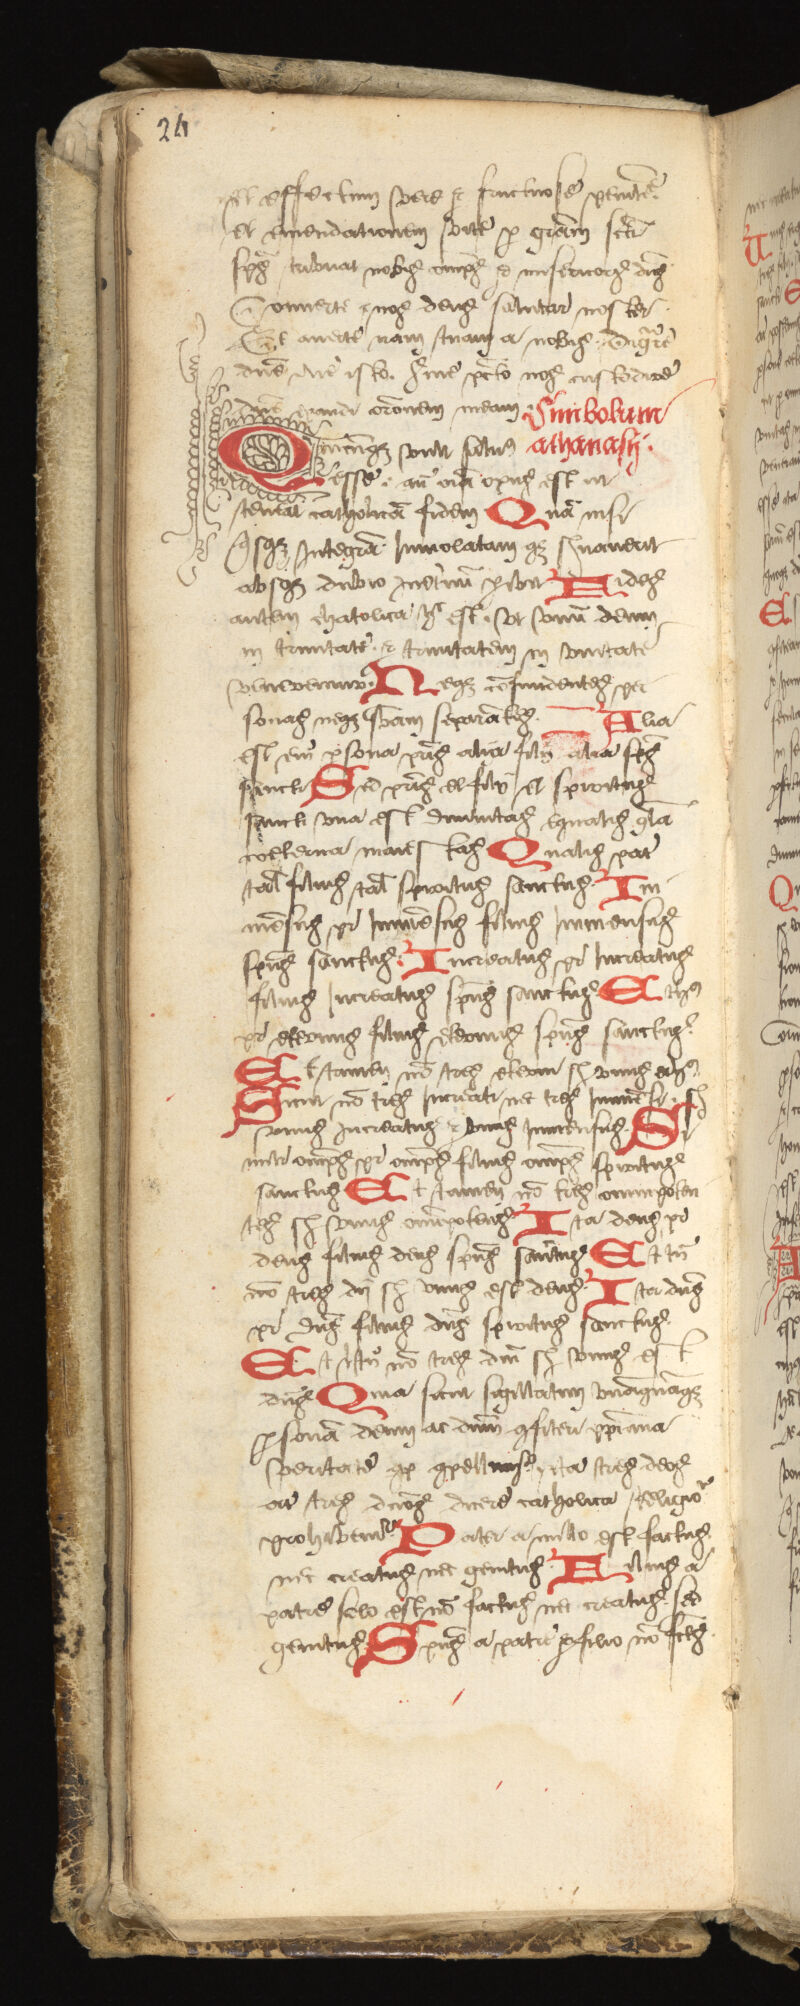 24
et effectum vere et fructuose penitentie
et emendationem vite per gratiam sancti
spiritus tribuat nobis omnipotens et misericors dominus
Converte nos deus salutaris noster
Et averte iram tuam a nobis Dignare
domine die isto sine peccato nos custodire
domine exaudi orationem meam Simbolum
Quicumque vult salvus athanasij
esse ante omnia opus est ut
teneat catholicam fidem Quam nisi
quisque integram Inviolatam que servaverit
absque dubio ineternum peribit Fides
autem chatolica hec est ut unum deum
in trinitate et trinitatem in unitate
veneremur Neque confundentes per
sonas neque substantiam separantes Alia
est enim persona patris alia filij alia spiritus
sancti Sed patris et filij et spiritus
sancti una est divinitas equalis gloria
coeterna maiestas Qualis pater
talis filius talis spiritus sanctus Im
mensus pater Immensus filius Immensus
spiritus sanctus Increatus pater Increatus
filius Increatus spiritus sanctus Eternus
pater eternus filius eternus spiritus sanctus
Et tamen non tres eterni sed unus eternus
Sicut non tres Increati nec tres Immensi sed
unus Increatus et unus Immensus Si
mili omnipotens pater omnipotens filius omnipotens spiritus
sanctus Et tamen non tres omnipoten
tes sed unus omnipotens Ita deus pater
deus filius deus spiritus sanctus Et tamen
non tres dij sed unus est deus Ita dominus
pater dominus filius dominus spiritus sanctus
Et tamen non tres domini sed unus est
dominus Quia sicut sigillatim unamquamque
personam deum ac dominum confiteri christiana
veritate compellimur ita tres deos
aut tres dominos dicere catholica religione
prohibemur Pater a nullo est factus
nec creatus nec genitus Filius a
patre solo est non factus nec creatus sed
genitus Spiritus a patre et filio non factus